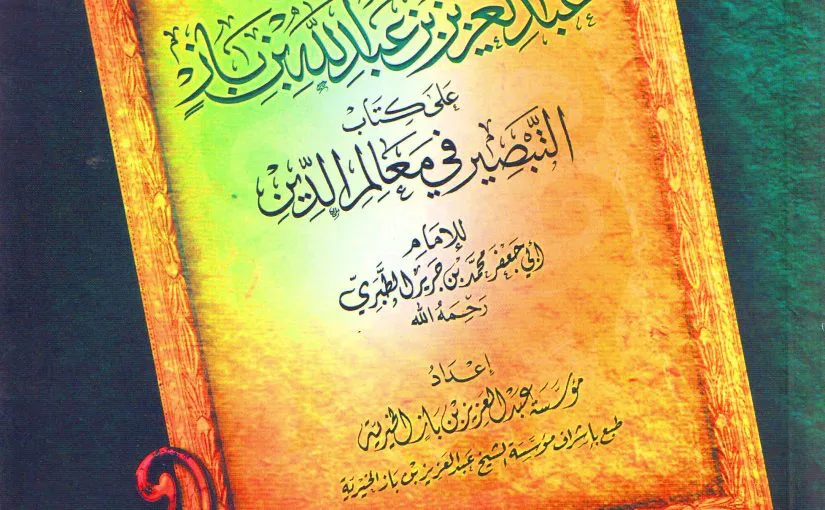 عَبْدِ الْعَزِيزِ بْنِ عَبْدِ اللَّهِ بْنِ بَازٍ
عَلَى كِتَابِ
التَّبْصِيرِ فِي مَعَالِمِ الدِّينِ
لِلْإِمَامِ
أَبِي جَعْفَرٍ مُحَمَّدِ بْنِ جَرِيرٍ الطَّبَرِيِّ
رَحِمَهُ الله
إِعْدَادُ
مُؤَسَّسَة عَبْد الْعَزِيز بْن بَاز الْخَيْرِيَّة
طبع بإشراف مؤسسة الشيخ عبد العزيز بن باز الخيرية